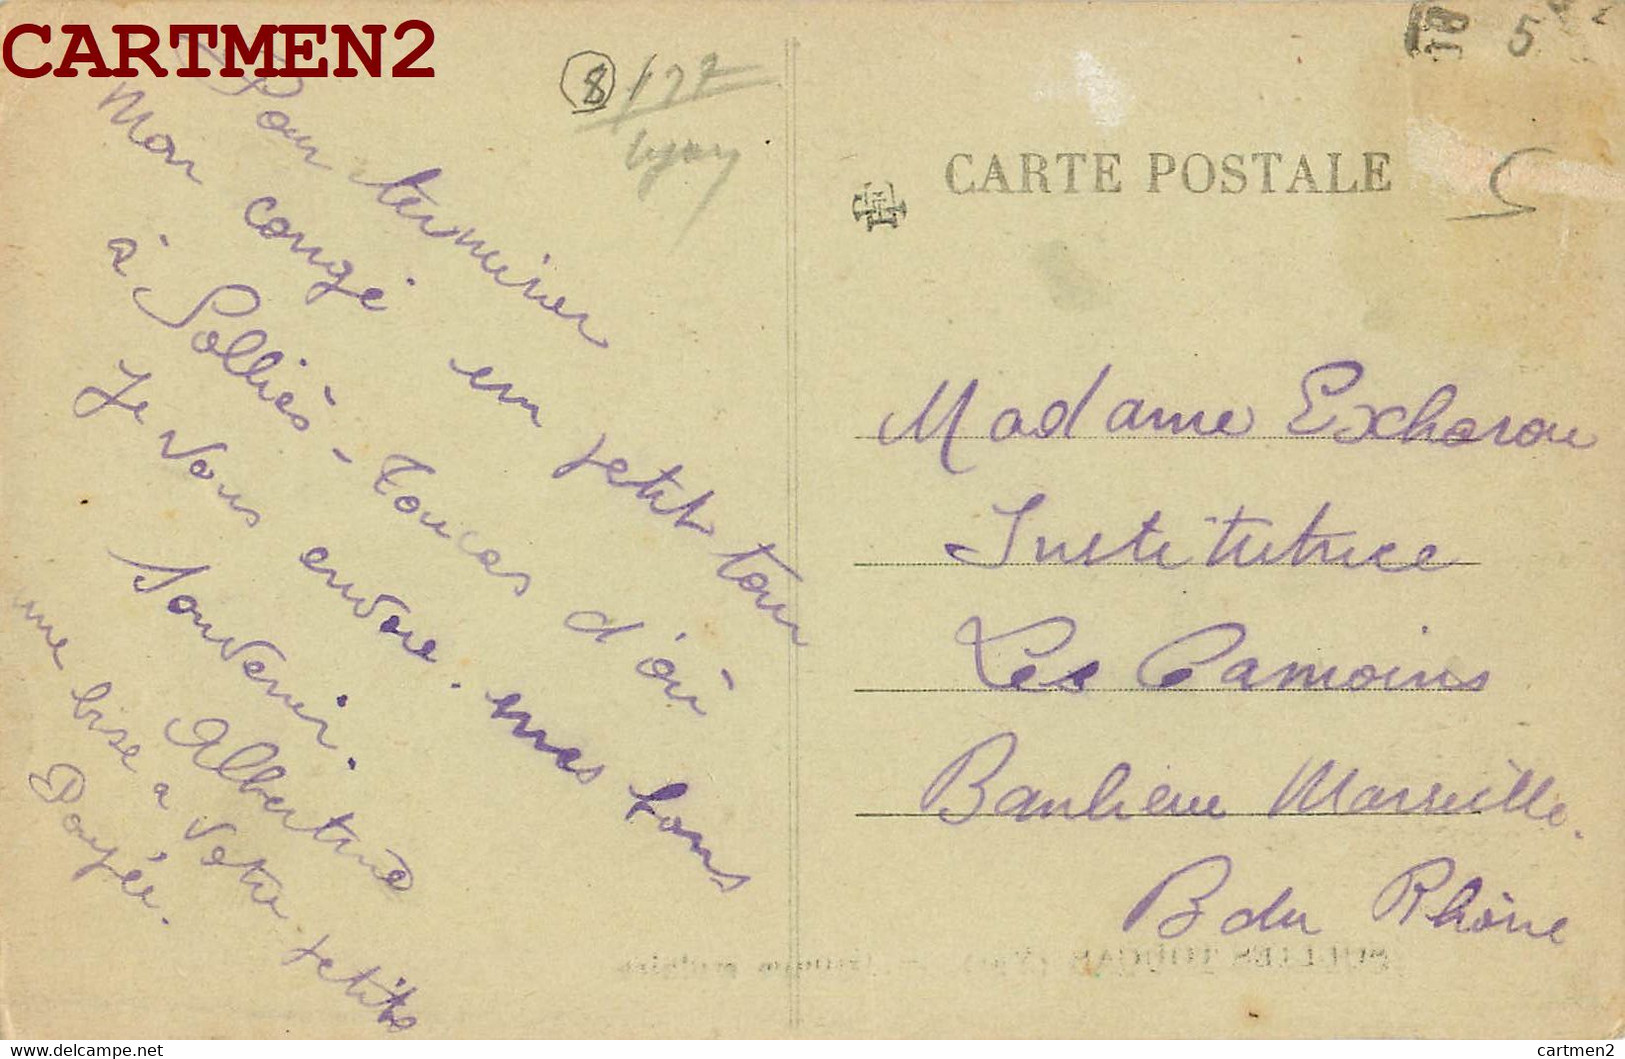 CARTMEN2
8
CARTE POSTALE
5
Pour terminer
mon congé en petit tour
à Solliès-Toucas d'où
Je vous envoie mes bons
souvenir.
Albertine
une bise a votre petite
Payée.
Madame
Institutrice
Les Camoins
Banlieue Marseille.
B du Rhône
www.delcampe.net
cartmen2